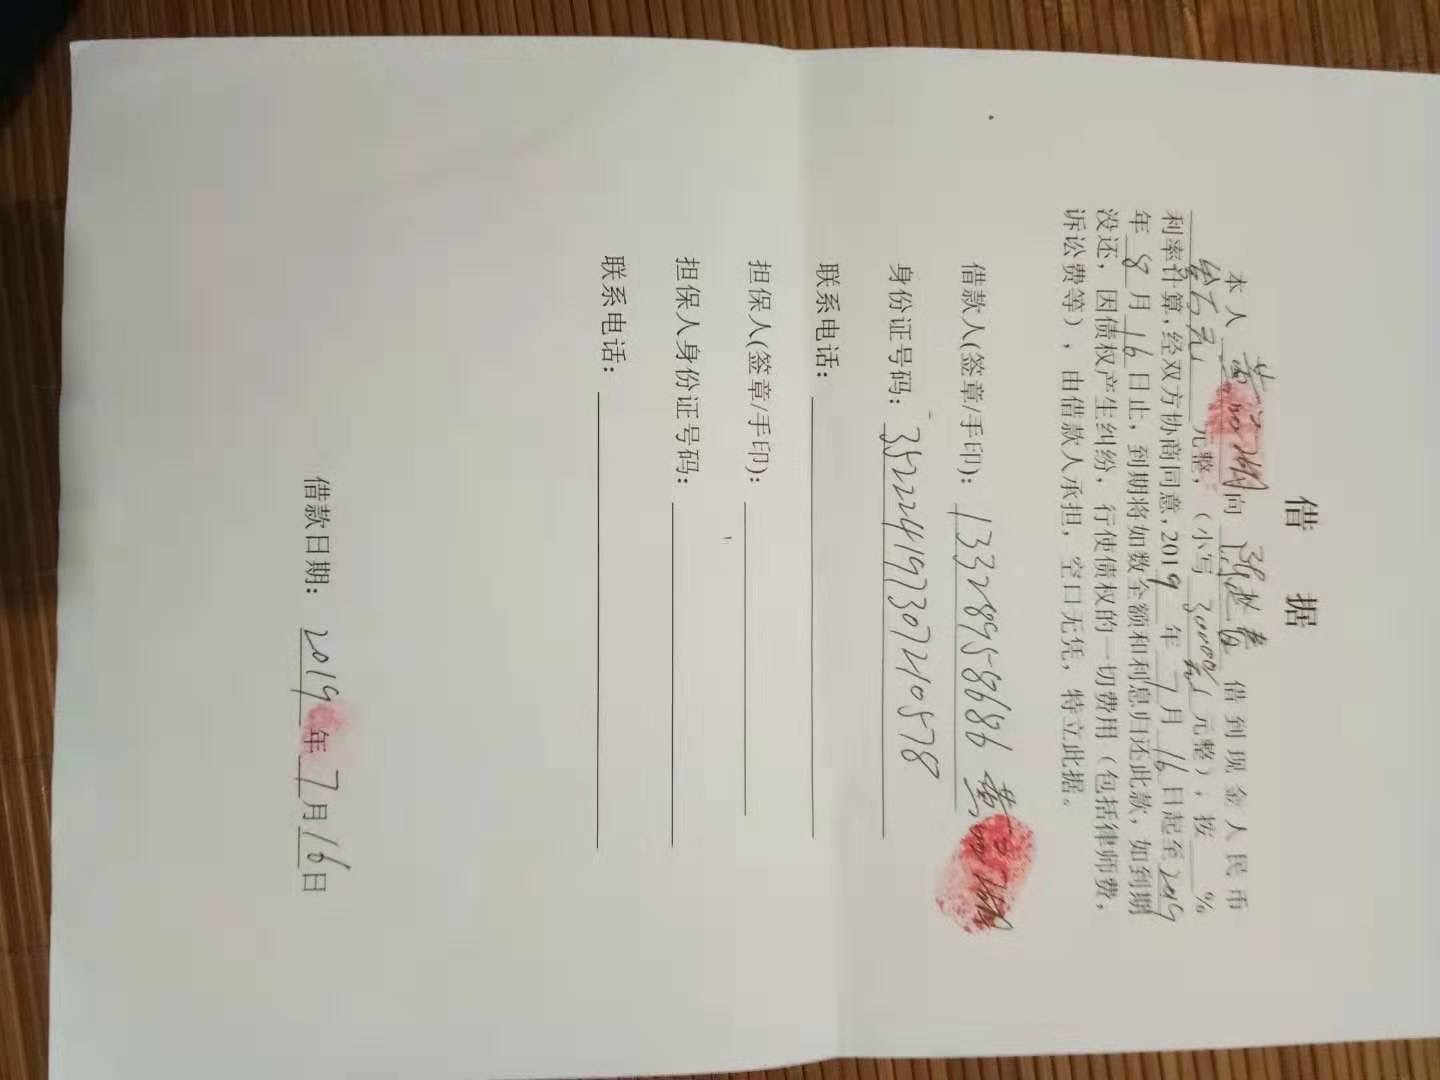 借 据
本人 黄 向 陈 贵 借到现金人民币
叁万元 元整，（小写 30000元 元整），按 %
利率计算，经双方协商同意，2019 年 7 月 16 日起至 2019
年 8 月 16 日止，到期将如数全额和利息归还此款，如到期
没还，因债权产生纠纷，行使债权的一切费用（包括律师费，
诉讼费等），由借款人承担，空口无凭，特立此据。
借款人(签章/手印)： 13328958686 黄
身份证号码： 352224197307210578
联系电话：
担保人(签章/手印)：
担保人身份证号码：
联系电话：
借款日期： 2019 年 7 月 16 日